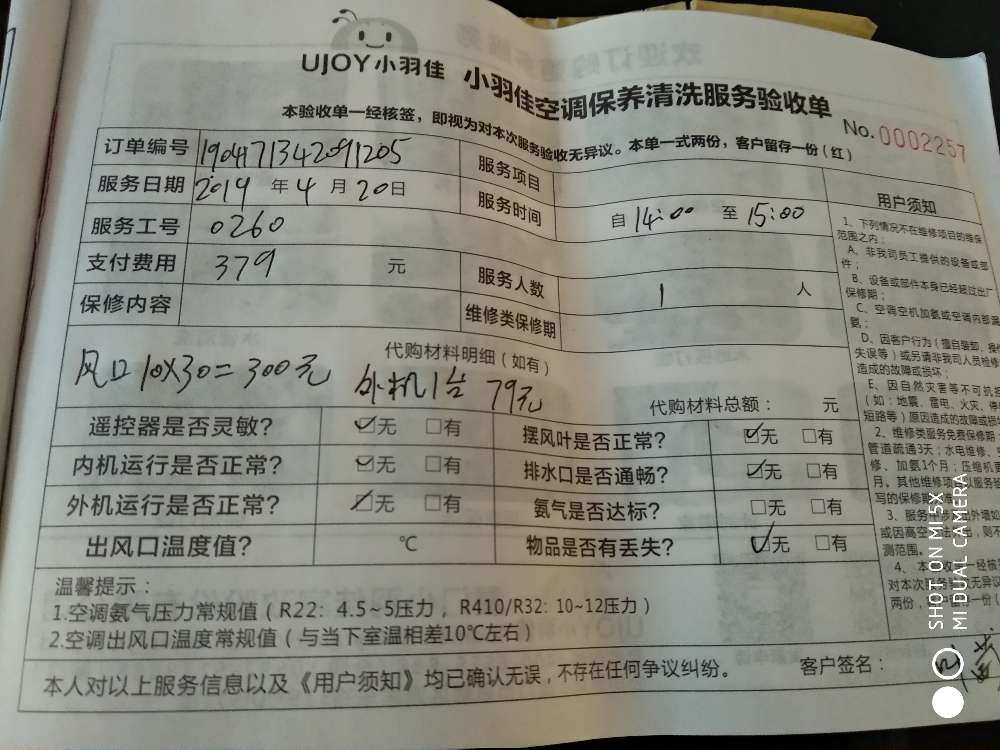 UJOY小羽佳 小羽佳空调保养清洗服务验收单
本验收单一经核签，即视为对本次服务验收无异议。本单一式两份，客户留存一份（红）
No.0002257
订单编号 1904171342091205 服务项目
服务日期 2019 年 4 月 20 日 服务时间 自 14:00 至 15:00
服务工号 0260
支付费用 379 元 服务人数 1 人
保修内容 维修类保修期
代购材料明细（如有）
风口10X30=300元 外机1台 79元
代购材料总额： 元
遥控器是否灵敏? ☑无 □有 摆风叶是否正常? ☑无 □有
内机运行是否正常? ☑无 □有 排水口是否通畅? ☑无 □有
外机运行是否正常? ☑无 □有 氨气是否达标? □无 □有
出风口温度值? ℃ 物品是否有丢失? ☑无 □有
温馨提示：
1.空调氨气压力常规值（R22：4.5~5压力，R410/R32: 10~12压力）
2.空调出风口温度常规值（与当下室温相差10℃左右）
本人对以上服务信息以及《用户须知》均已确认无误，不存在任何争议纠纷。 客户签名：
用户须知
1、下列情况不在维修项目的维保
范围之内：
A、非我司员工提供的设备或部
件；
B、设备或部件本身已经超过出厂
保修期；
C、空调空机加氨或空调内部漏
氨；
D、因客户行为（擅自装卸，操作
失误等）或另请非我司人员检修
造成的故障或损坏；
E、因自然灾害等不可抗拒
（如:地震、雷电、火灾、停
短路等）原因造成的故障或损坏
2、维修类服务免费保修期
管道疏通3天；水电维修、
修、加氨1个月；压缩机更
月。其他维修项 以服务验
写的保修期 准
3、服务中涉 出外墙如
或因高空 出，则不
测范围。
4、本 收 一经核
对本次服务验收无异议
两份，客户留存一份（
SHOT ON MI 5X
MI DUAL CAMERA